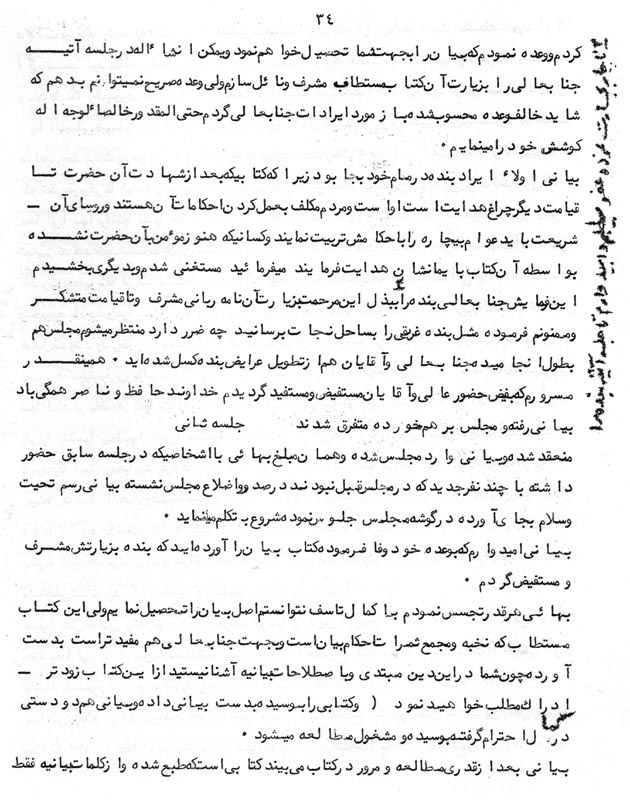 ٣٤
کردم و وعده نمودم که بیان را بجهت شما تحصیل خواهم نمود و یمکن انشاءالله در جلسه آتیه
جنابعالی را بزیارت آن کتاب مستطاب مشرف و نائل سازم ولی وعده صریح نمیتوانم بدهم که
شاید خالفوعده محسوب شده باز مورد ایرادات جنابعالی گردم حتی المقدور خالصا لوجه اله
کوشش خود را مینمایم ٠
بیانی اولاً ایراد بنده در مقام خود بجا بود زیرا که کتابیکه بعد از شهادت آن حضرت تا
قیامت دیگر چراغ هدایت است او است و مردم مکلف بعمل کردن احکامات آن هستند و روسای آن –
شریعت باید عوام بیچاره را با حکامش تربیت نمایند و کسانیکه هنوز مومن بآن حضرت نشده
بواسطه آن کتاب بایمانشان هدایت فرمایند میفرمائید مستغنی شدم و بدیگری بخشیدم
این فرمایش جنابعالی بنده را ببذل این مرحمت بزیارت آن نامه ربانی مشرف و تا قیامت متشکر
و ممنونم فرموده مثل بنده غریقی را بساحل نجات برسانید چه ضرر دارد منتظر میشوم مجلس هم
بطول انجامیده جنابعالی و آقایان هم از تطویل عرایض بنده کسل شده اید ٠ همینقدر
مسرورم که بفیض حضور عالی و آقایان مستفیض و مستفید گردیدم خداوند حافظ و ناصر همگی باد
بیانی رفته و مجلس بر هم خورده متفرق شدند جلسه ثانی
منعقد شده و بیانی وارد مجلس شده و همان مبلغ بهائی با اشخاصیکه در جلسه سابق حضور
داشته با چند نفر جدید که در مجلس قبل نبودند در صدر و اضلاع مجلس نشسته بیانی رسم تحیت
وسلام بجای آورده در گوشه مجلس جلوس نموده شروع بتکلم مینماید ٠
بیانی امیدوارم که بوعده خود وفا فرموده کتاب بیان را آورده اید که بنده بزیارتش مشرف
و مستفیض گردم ٠
بهائی هر قدر تجسس نمودم با کمال تاسف نتوانستم اصل بیان را تحصیل نمایم ولی این کتاب
مستطاب که نخبه و مجمع ثمرات احکام بیان است و بجهت جنابعالی هم مفید تر است بدست
آورده چون شما در این دین مبتدی و با صطلاحات بیانیه آشنا نیستید از این کتاب زودتر –
ادراك مطلب خواهید نمود ( و کتابی را بوسیده بدست بیانی داده و بیانی هم دو دستی
در احترام گرفته بوسیده و مشغول مطالعه میشود ٠
بیانی بعد از قدری مطالعه و مرور در کتاب می بیند کتابی است که طبع شده و از کلمات بیانیه فقط